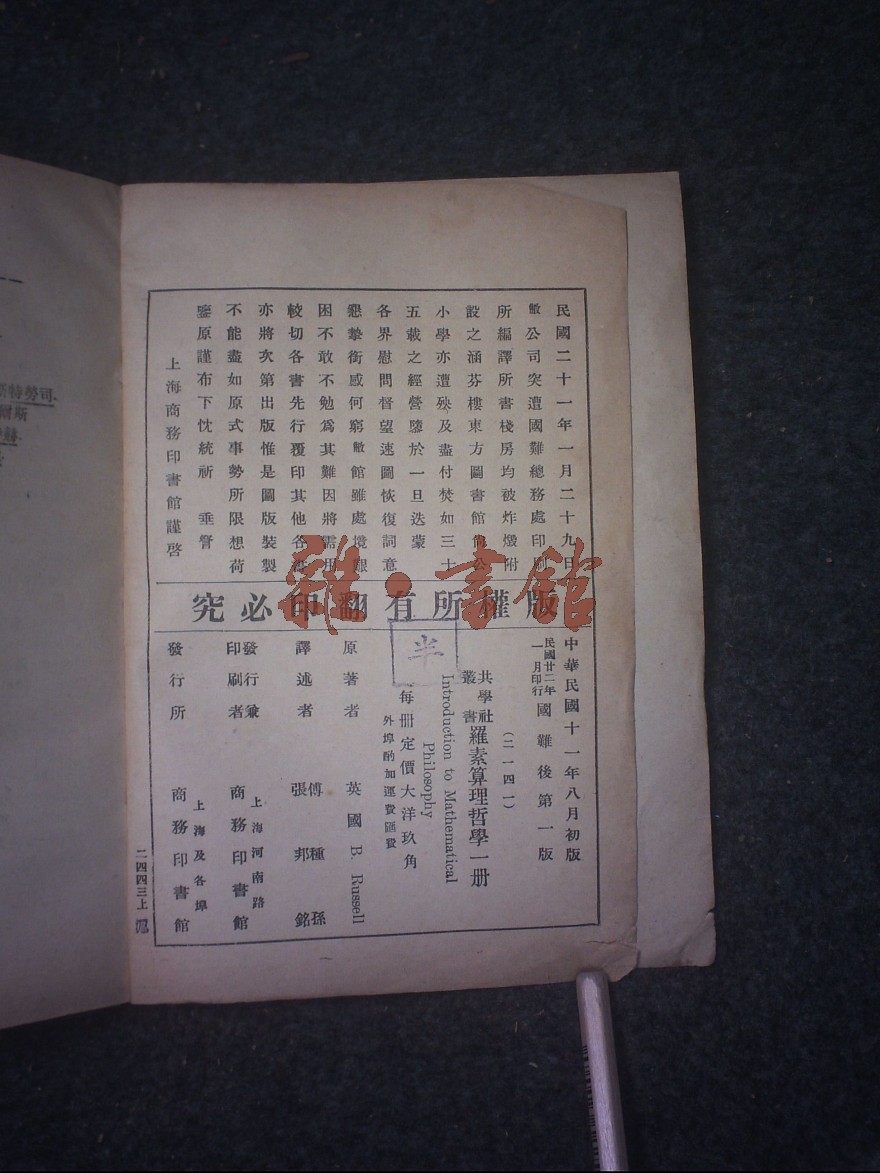 民國二十一年一月二十九日
敝公司突遭國難總務處印刷
所編譯所書棧房均被炸燬附
設之涵芬樓東方圖書館尙公
小學亦遭殃及盡付焚如三十
五載之經營隳於一旦迭蒙
各界慰問督望速圖恢復詞意
懇摯銜感何窮敝館雖處境艱
困不敢不勉爲其難因將需用
較切各書先行覆印其他各書
亦將次第出版惟是圖版裝製
不能盡如原式事勢所限想荷
鑒原謹布下忱統祈 垂詧
上海商務印書館謹啓
版權所有翻印必究
中華民國十一年八月初版
民國廿二年一月印行 國難後第一版
(二一四一)
共學社叢書 羅素算理哲學一册
Introduction to Mathematical
Philosophy
每册定價大洋玖角
外埠酌加運費匯費
原著者 英國 B. Russell
譯述者 傅種孫 張邦銘
發行兼印刷者 上海河南路 商務印書館
發行所 上海及各埠 商務印書館
二四四三上
半
雜·書館